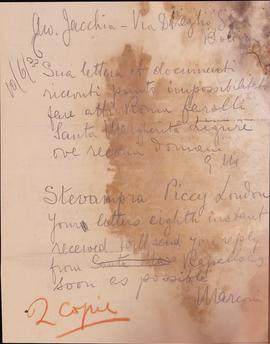 Avv. Jacchia - Via D'Azeglio
10/6/33
Sua lettera et documenti
ricevuti punto impossibilitato
fare atti Roma
Santa Margherita Ligure
ove recomi domani
G. M.
Stevampra Piccy London
Your letters eighth instant
received will send you reply
from Santa Mar
soon as possible
Marconi
2 copie